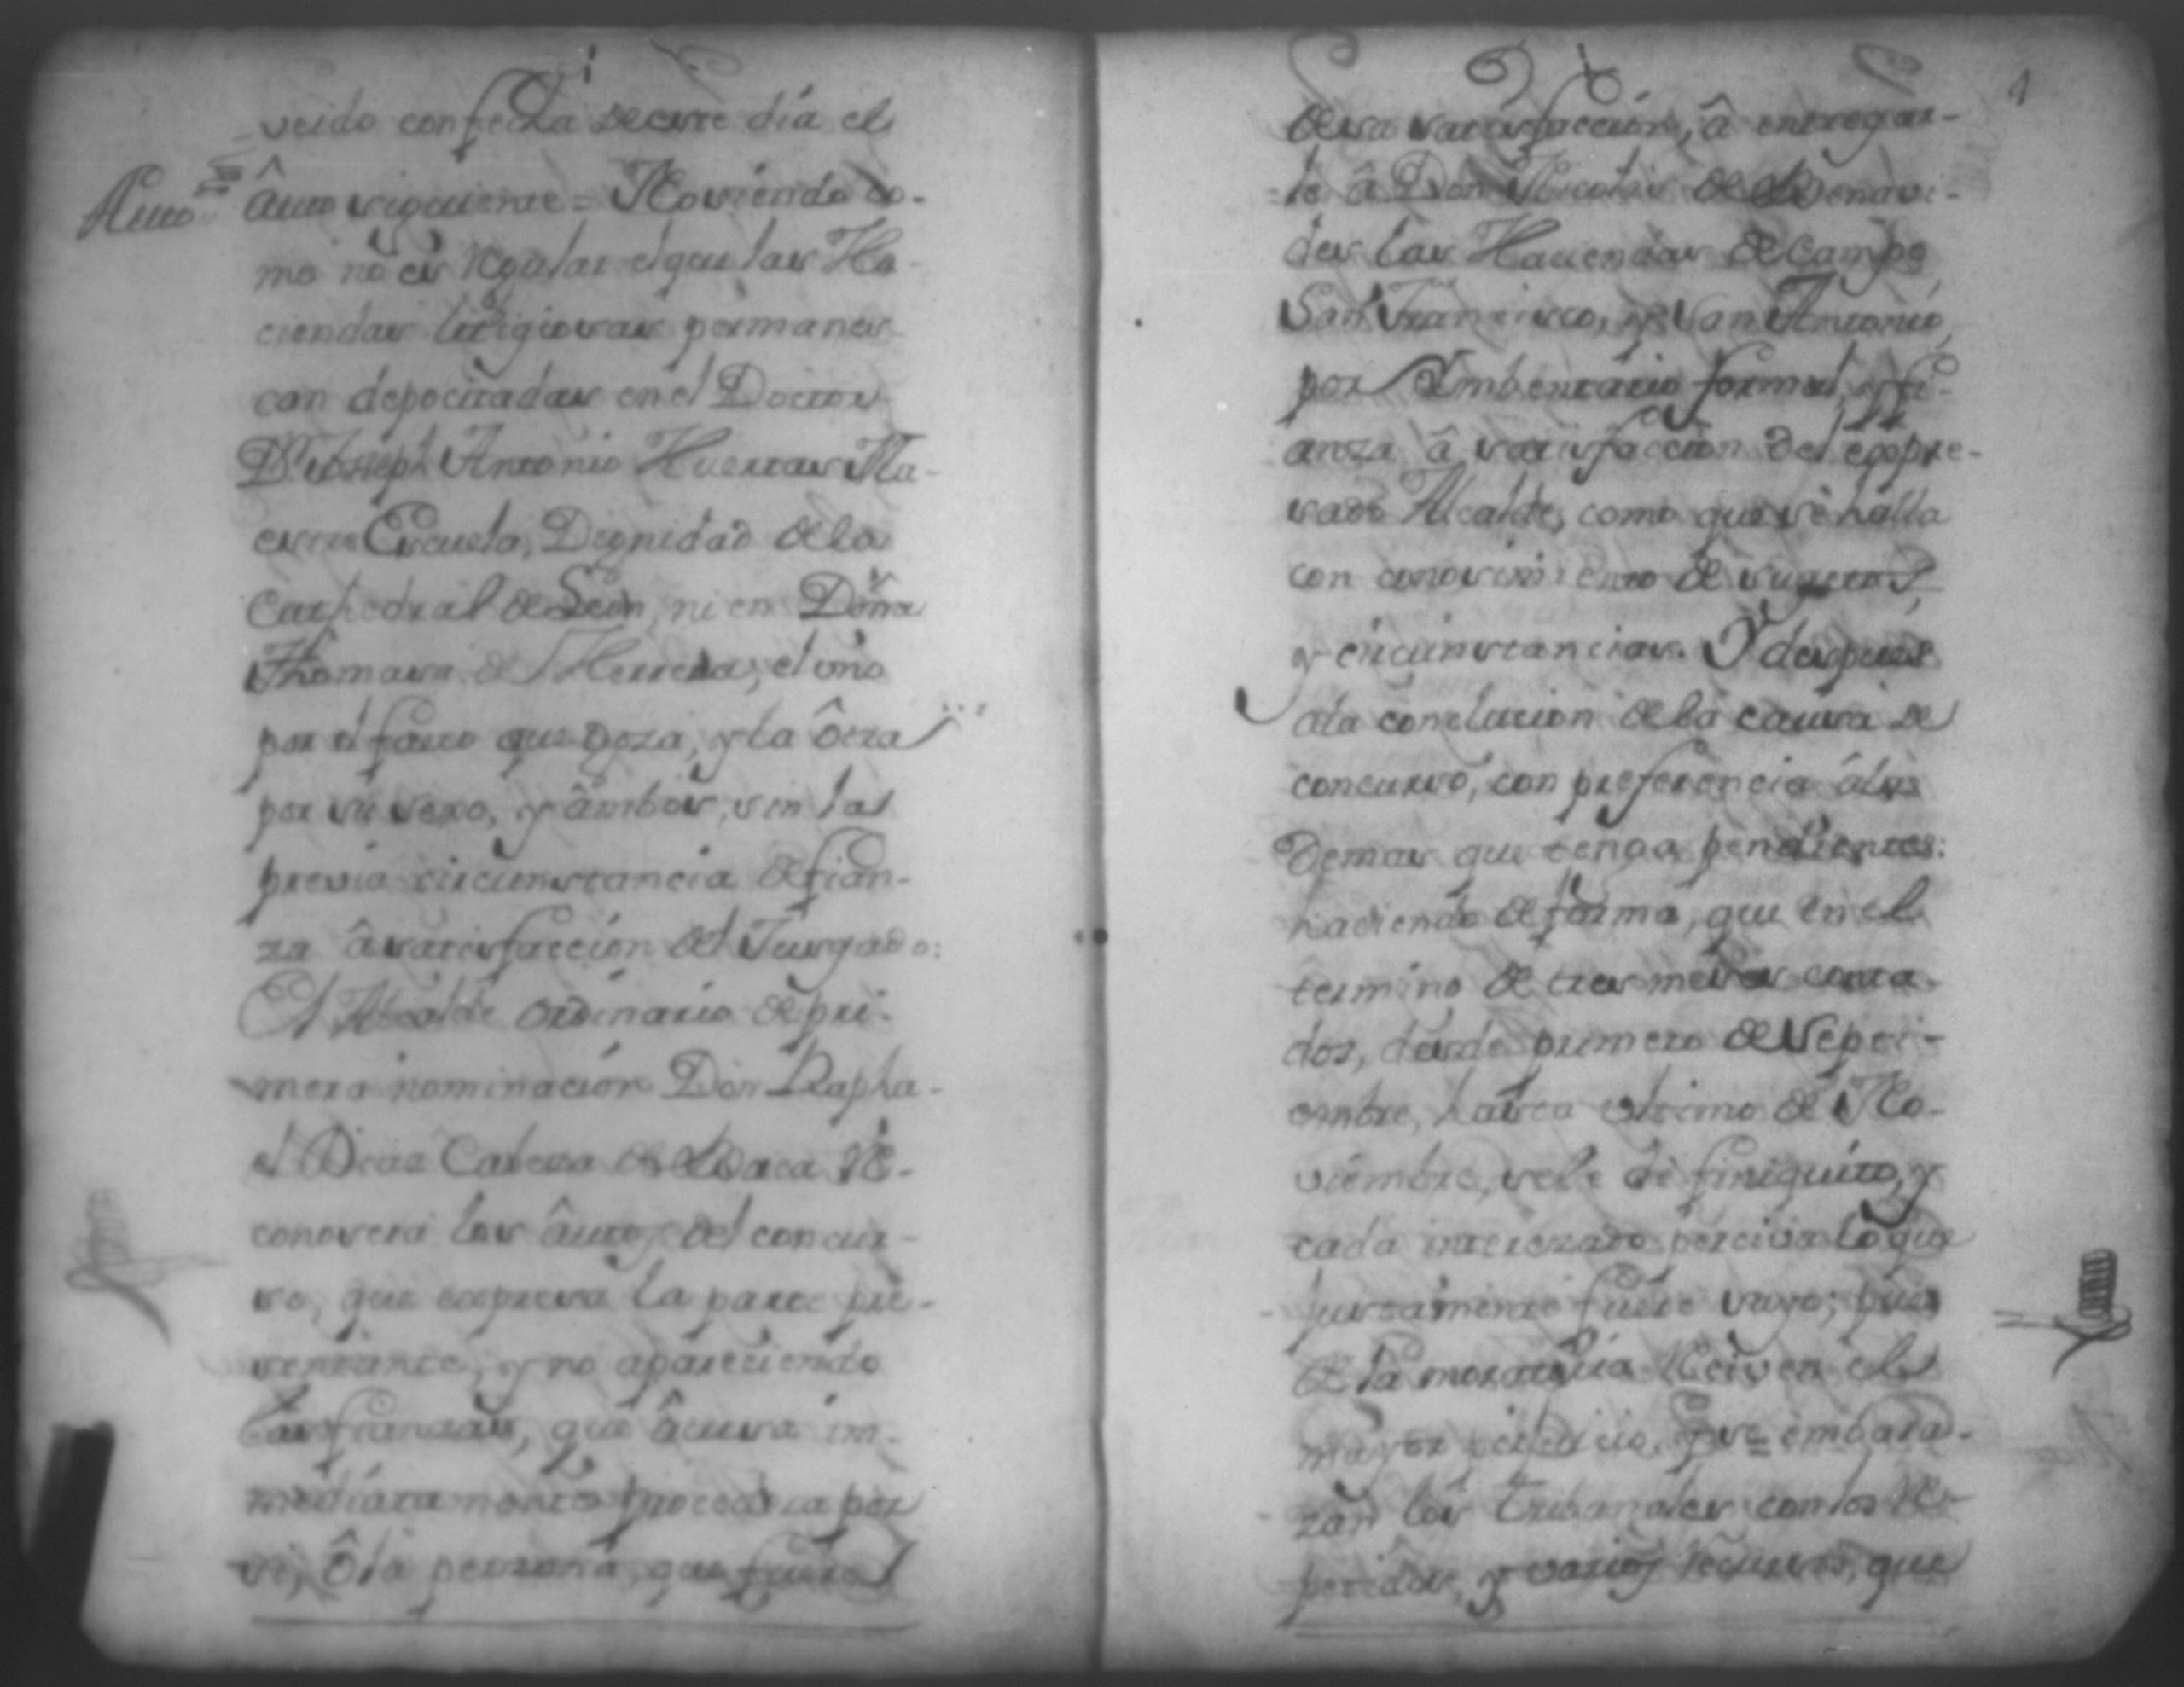 veido con fecha de este dia el
Auto
âuto siguiente = No siendo co-
mo no es regular el que las Ha-
ciendas litigiosas permanes-
can depocitadas en el Doctor
Dn. Joseph Antonio Huertas Ma-
estre Escuela, Dignidad de la
Cathedral de Leon, ni en Doña
Thomasa de Herrera, el uno
por el fuero que goza, y la ôtra
por su sexo, y âmbos, sin la
previa circunstancia de fian-
za â satisfacción del Jusgado:
El Alcalde ordinario de pri-
mera nominación Don Rapha-
el Dias Cabeza de Baca Re-
conosera los âutos del concur-
so, que expresa la parte pre-
sentante, y no apareciendo
las fianzas, que âcusa im-
mediatamente procedera por
si, ô la persona que fuere
1
de su satisfacción, â entregar-
le â Don Nicolas de Benavi-
des las Haciendas de Campo
San Francisco, y San Antonio,
por Imbentario formal, y fi-
anza â satisfaccion del expre-
sado Alcalde, como que se halla
con conosimiento de sugetos,
y circunstancias. Y despues
a la conclucion de la causa de
concurso, con preferencia â las
demas que tenga pendientes:
haciendo de forma, que en el
termino de tres meses conta-
dos, desde primero de Septi-
embre, hasta ultimo de No-
viembre, se le dè finiquito, y
cada interezado perciva lo que
justamente fuere suyo; pues
de la moratoria Reciven el
mayor perjuicio, y se embara-
zan los tribunales con los Re-
petidos, y varios recursos, que